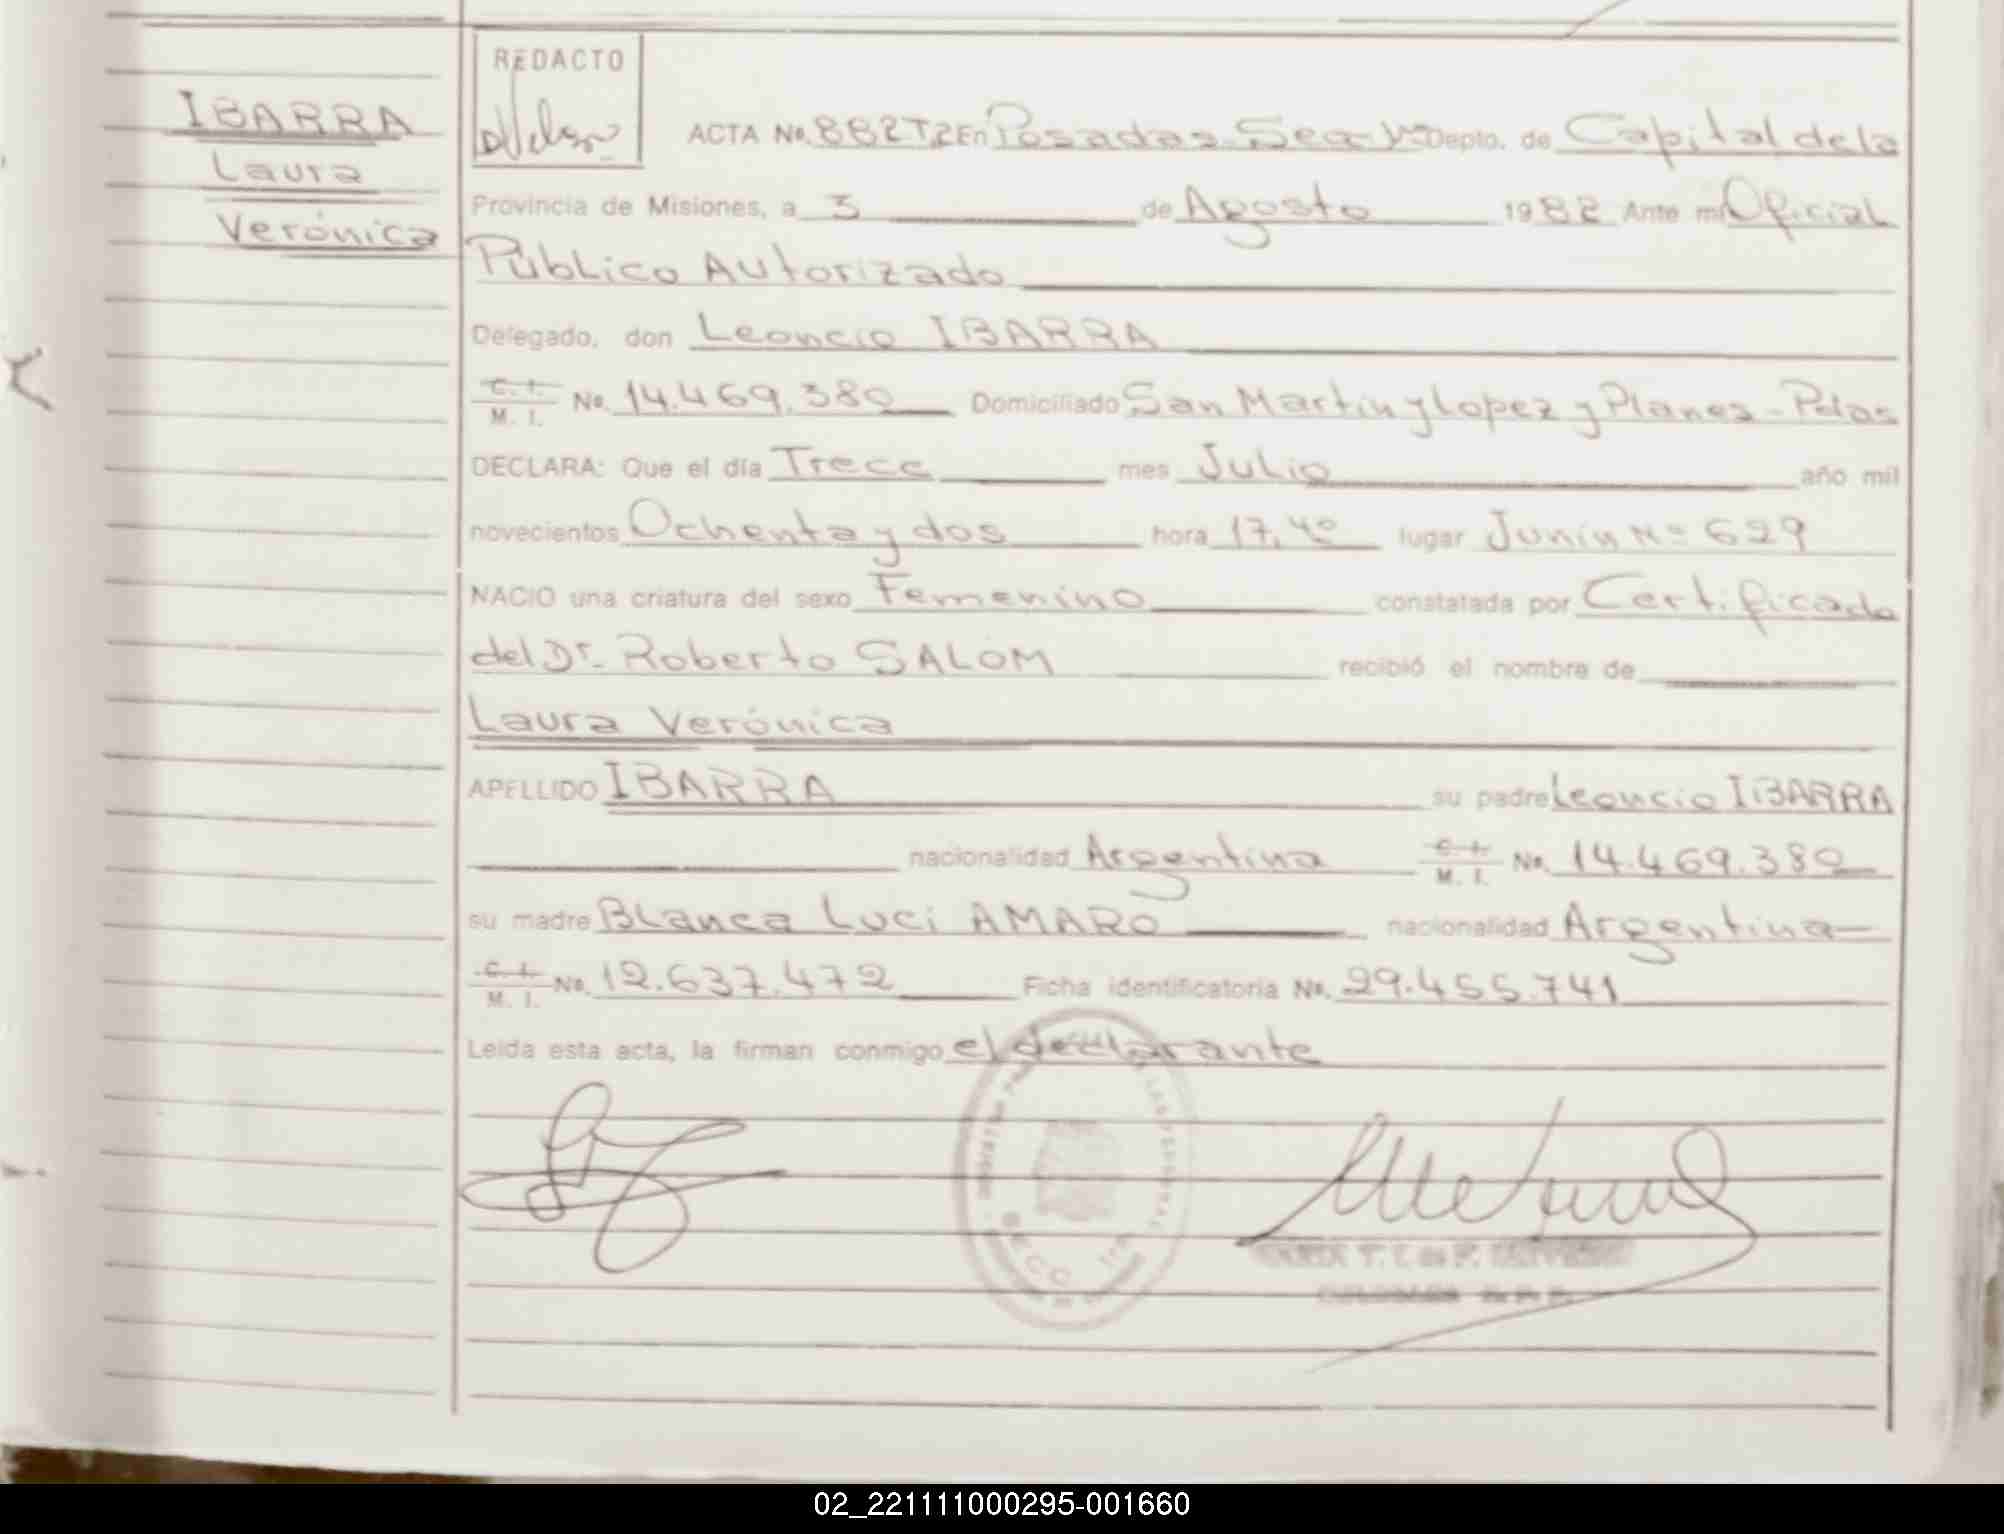 IBARRA
Laura
Verónica
REDACTO
ACTA No. 882 T2 En Posadas Sec. Depto. de Capital de la
Provincia de Misiones, a 3 de Agosto 1982 Ante mí Oficial
Público Autorizado
Delegado, don Leoncio IBARRA
C. I. M. I. No. 14.469.380 Domiciliado San Martín y Lopez y Planes - Pdas
DECLARA: Que el día Trece mes Julio año mil
novecientos Ochenta y dos hora 17,40 lugar Junín Nº 629
NACIO una criatura del sexo Femenino constatada por Certificado
del Dr. Roberto SALOM recibió el nombre de
Laura Verónica
APELLIDO IBARRA su padre Leoncio IBARRA
nacionalidad Argentina C. I. M. I. No. 14.469.380
su madre Blanca Luci AMARO nacionalidad Argentina
C. I. M. I. No. 12.637.472 Ficha identificatoria No. 29.455.741
Leída esta acta, la firman conmigo el declarante
02_221111000295-001660